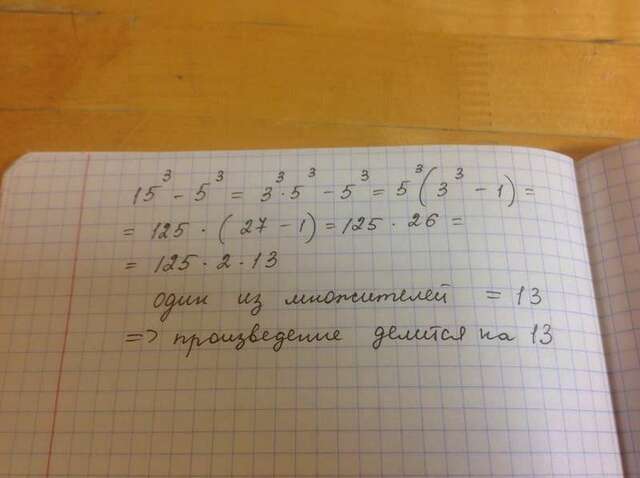 15³ - 5³ = 3³·5³ - 5³ = 5³(3³ - 1) =
= 125 · (27 - 1) = 125 · 26 =
= 125 · 2 · 13
один из множителей = 13
=> произведение делится на 13